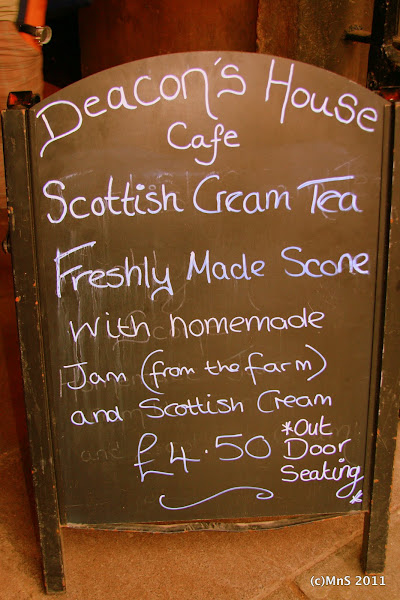 Deacon's House
Cafe
Scottish Cream Tea
Freshly Made Scone
with homemade
Jam (from the farm)
and Scottish Cream
£4.50
*Out
Door
Seating
*
(c)MnS 2011